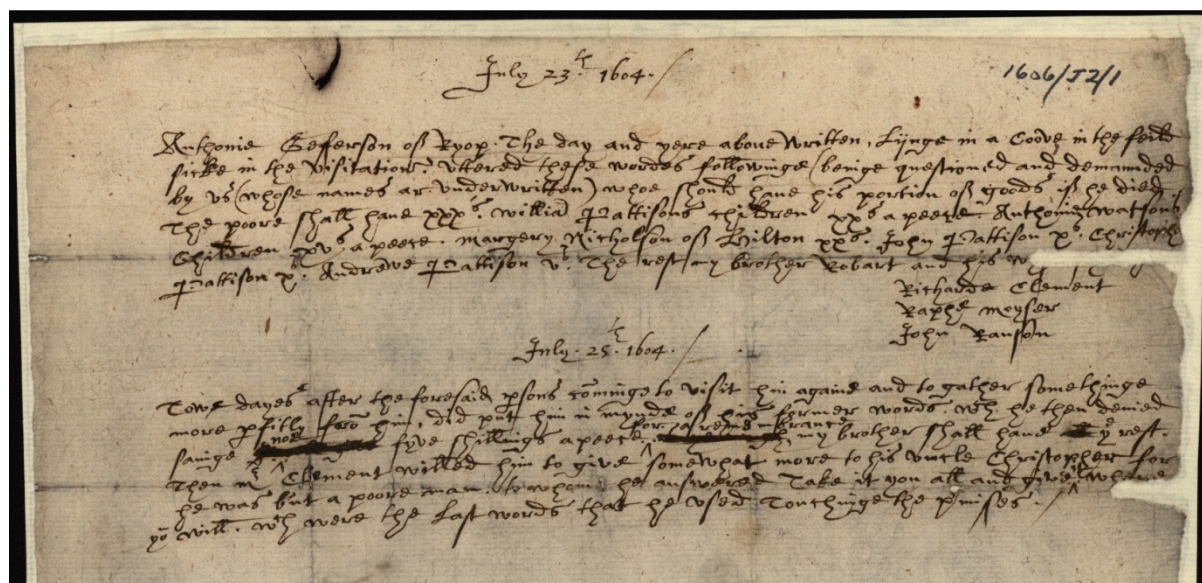 July 23.th 1604./
1606/J2/1
Anthonie Gefferson off Ryop. The day and yere above written, Lyinge in a Coove in the feild
sicke in the visitation, uttered these wordes followinge (beinge questioned and demannded
by us (whose names ar underwritten) whoe should have his portion off goods iff he died
The poore shall have xxxs. william Pattisons children xxs a peece. Anthonie watsons
Children xvs. a peece. Margery Nicholson off Hilton xxs. John Pattison xs. Christophe
Pattison xs. Andrewe Pattison vs. The rest my brother Robart and his
Richarde Clement
Raphe Moyser
John Ranson
July. 25.th 1604./
Towe dayes after the foresaid psons cominge to visit him againe and to gather somethinge
more pfitly fro him, did put him in mynde off his former words. wch he then denied
sainge fyve shillings a peece for a remembrance, my brother shall have ye rest.
Then mr Clement willed him to give somewhat more to his uncle Christopher for
he was but a poore man. to whome he answered Take it you all and give it whome
yo will. wch were the Last words that he used Touchinge the pmisses./